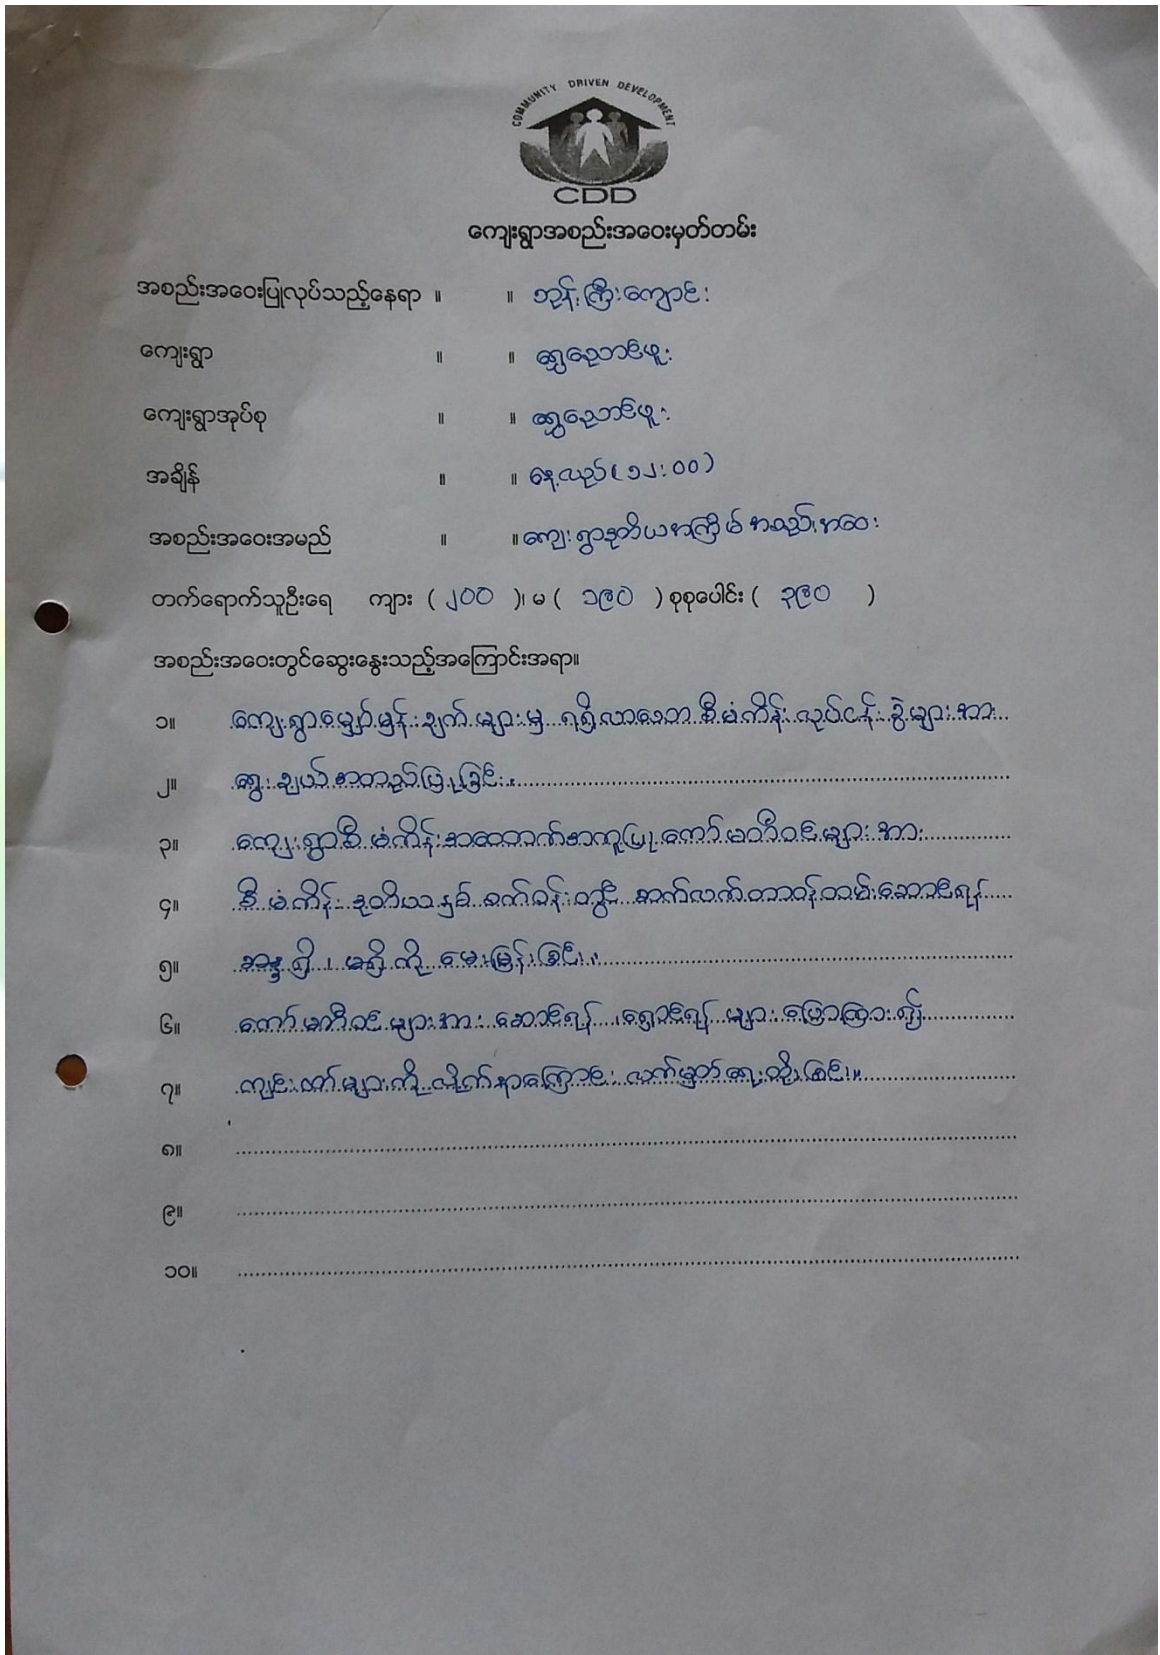 COMMUNITY DRIVEN DEVELOPMENT
CDD
ကျေးရွာအစည်းအဝေးမှတ်တမ်း
အစည်းအဝေးပြုလုပ်သည့်နေရာ ။ ။ ဘုန်းကြီးကျောင်း
ကျေးရွာ ။ ။ ရွှေညောင်ဖူး
ကျေးရွာအုပ်စု ။ ။ ရွှေညောင်ဖူး
အချိန် ။ ။ နေ့လည် (၁၂:၀၀)
အစည်းအဝေးအမည် ။ ။ ကျေးရွာဒုတိယအကြိမ် အစည်းအဝေး
တက်ရောက်သူဦးရေ ကျား ( ၂၀၀ )၊ မ ( ၁၉၀ ) စုစုပေါင်း ( ၃၉၀ )
အစည်းအဝေးတွင်ဆွေးနွေးသည့်အကြောင်းအရာ။
၁။ ကျေးရွာမျှော်မှန်းချက်များမှ ရရှိလာသော စီမံကိန်းလုပ်ငန်းခွဲများအား
၂။ ရွေးချယ်အတည်ပြုခြင်း။
၃။ ကျေးရွာစီမံကိန်းအထောက်အကူပြုကော်မတီဝင်များအား
၄။ စီမံကိန်းဒုတိယနှစ်စက်ဝန်းတွင် ဆက်လက်တာဝန်ထမ်းဆောင်ရန်
၅။ ဆန္ဒရှိ၊ မရှိကို မေးမြန်းခြင်း။
၆။ ကော်မတီဝင်များအား ဆောင်ရန်၊ ရှောင်ရန်များပြောကြား၍
၇။ ကျင့်ဝတ်များကို လိုက်နာကြောင်း လက်မှတ်ရေးထိုးခြင်း။
၈။
၉။
၁၀။